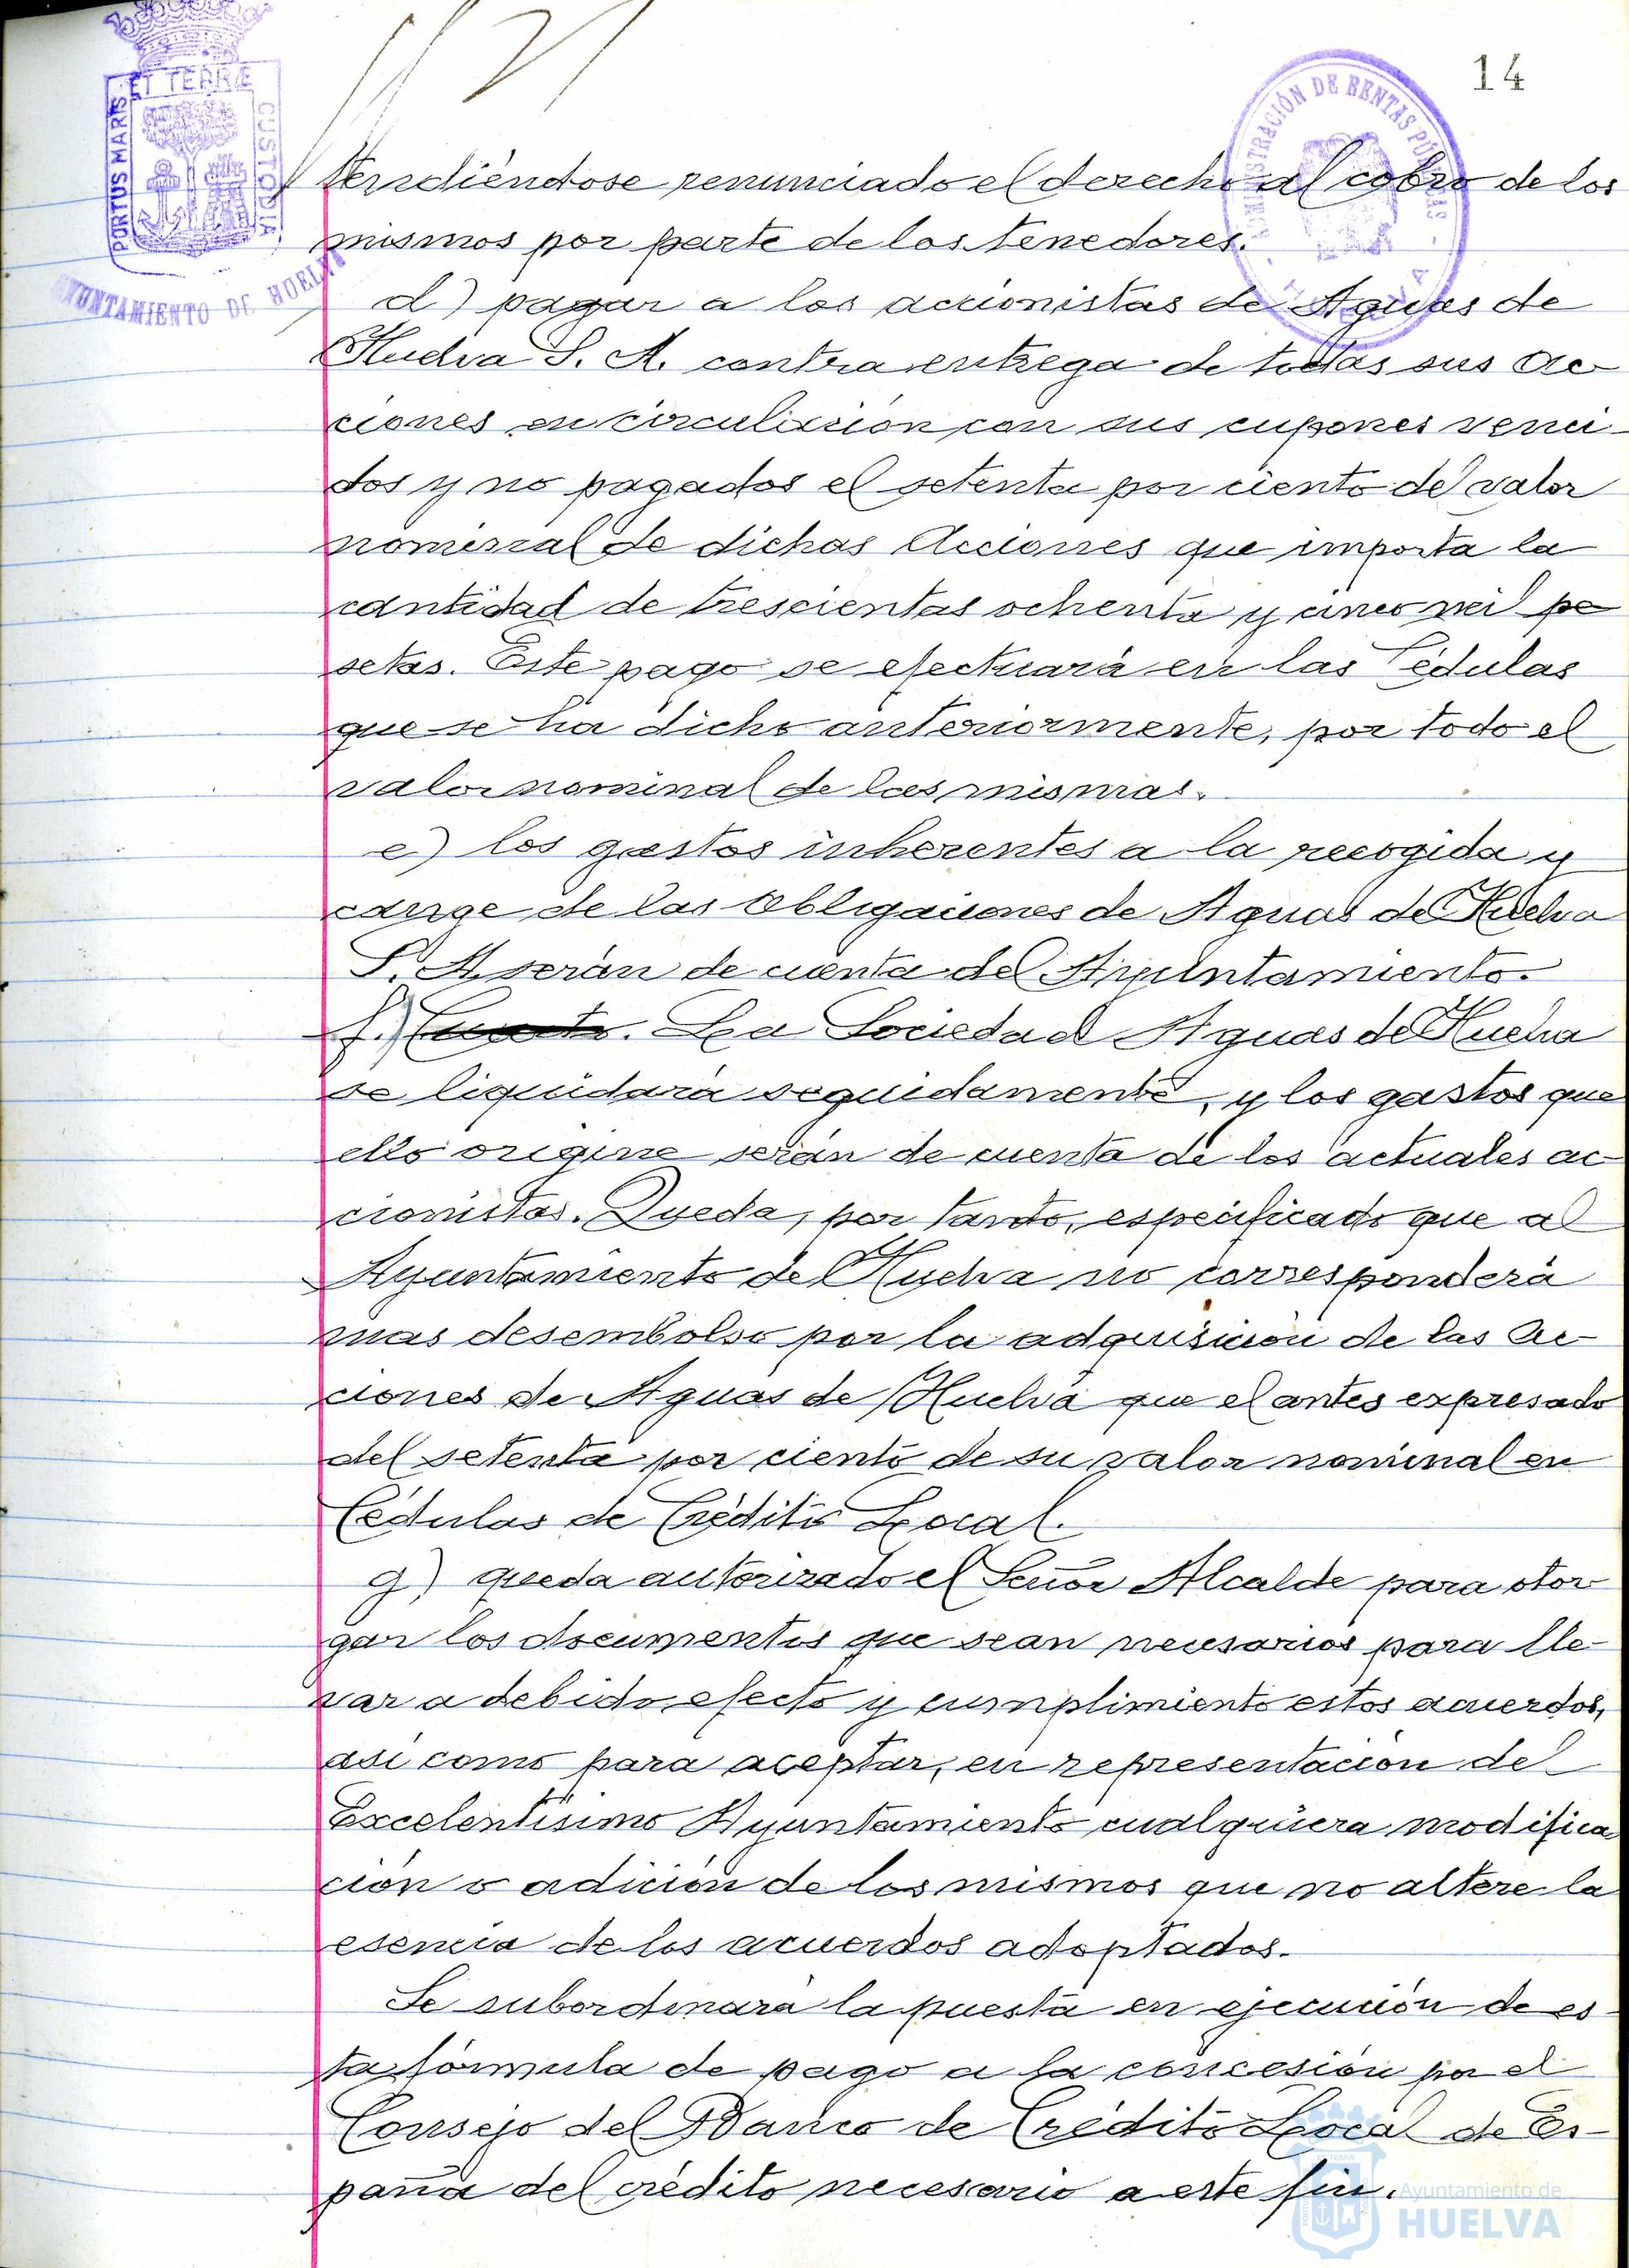 14
PORTUS MARIS ET TERRÆ CUSTODIA
AYUNTAMIENTO DE HUELVA
ADMINISTRACIÓN DE RENTAS PÚBLICAS
tendiéndose renunciado el derecho al cobro de los
mismos por parte de los tenedores.
d) pagar a los accionistas de Aguas de
Huelva S. A. contra entrega de todas sus Ac-
ciones en circulación con sus cupones venci-
dos y no pagados el setenta por ciento del valor
nominal de dichas Acciones que importa la
cantidad de trescientas ochenta y cinco mil pe
setas. Este pago se efectuará en las Cédulas
que se ha dicho anteriormente, por todo el
valor nominal de las mismas.
e) los gastos inherentes a la recogida y
cange de las Obligaciones de Aguas de Huelva
S. A. serán de cuenta del Ayuntamiento.
f.) Cuarto. La Sociedad Aguas de Huelva
se liquidará seguidamente, y los gastos que
ello origine serán de cuenta de los actuales ac-
cionistas. Queda, por tanto, especificado que al
Ayuntamiento de Huelva no corresponderá
mas desembolso por la adquisición de las Ac-
ciones de Aguas de Huelva que el antes expresado
del setenta por ciento de su valor nominal en
Cédulas de Crédito Local.
g) queda autorizado el Señor Alcalde para otor
gar los documentos que sean necesarios para lle-
var a debido efecto y cumplimiento estos acuerdos,
asi como para aceptar, en representación del
Excelentísimo Ayuntamiento cualquiera modifica
ción o adición de los mismos que no altere la
esencia de los acuerdos adoptados.
Se subordinará la puesta en ejecución de es
ta fórmula de pago a la concesión por el
Consejo del Banco de Crédito Local de Es-
paña del crédito necesario a este fin.
Ayuntamiento de
HUELVA